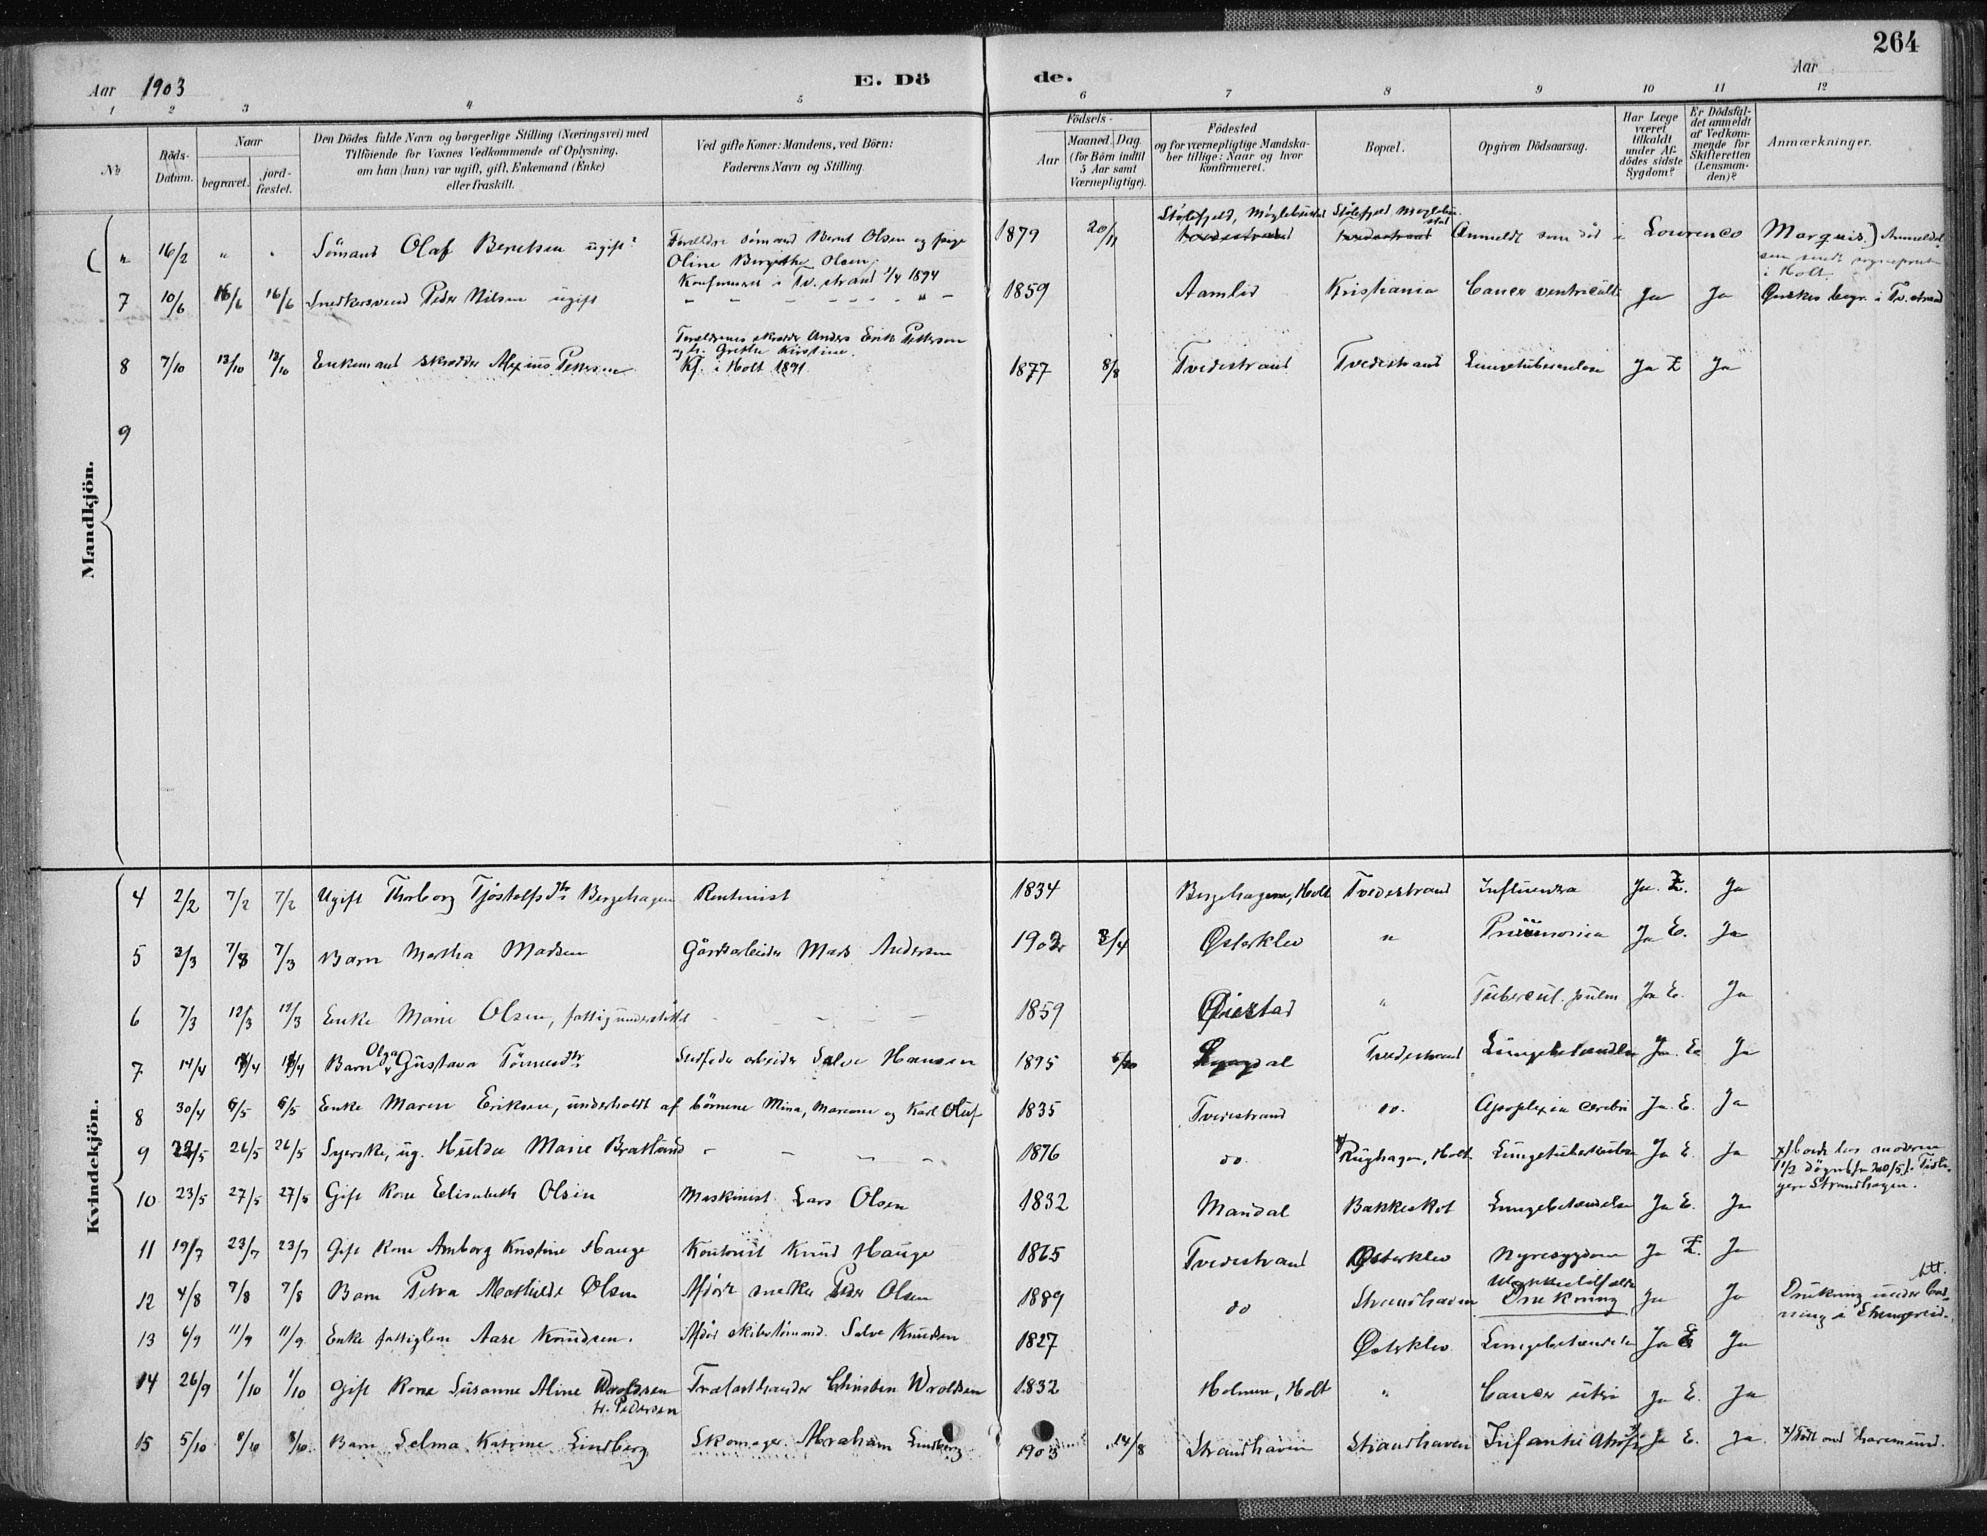 264
Aar 1903 E. Dö de. Aar
1 2 3 4 5 6 7 8 9 10 11 12
No
Döds-Datum.
Naar
begravet.
jord-fæstet.
Den Dödes fulde Navn og borgerlige Stilling (Næringsvei) med
Tilföiende for Voxnes Vedkommende af Oplysning,
om han (hun) var ugift, gift, Enkemand (Enke)
eller fraskilt.
Ved gifte Koner: Mandens, ved Börn:
Faderens Navn og Stilling.
Födsels-
Aar
Maaned. Dag.
(for Börn indtil
5 Aar samt
Værnepligtige).
Födested
og for værnepligtige Mandska-
ber tillige: Naar og hvor
konfirmeret.
Bopæl.
Opgiven Dödsaarsag.
Har Læge
været
tilkaldt
under Af-
dödes sidste
Sygdom?
Er Dödsfal-
det anmeldt
af Vedkom-
mende for
Skifteretten
(Lensman-
den)?
Anmærkninger.
Mandkjön.
( " 16/2 " " Sömand Olaf Berntsen ugift? Forældre sömand Bernt Olsen og pige 1879 20/11 Stölefjeld, Möglebustad Stölefjeld Moglebustad Anmeldt som död i Lourenco Marquis.) Anmeldt
Oline Olsen tvedestrand tvedestrand
Konfirmeret i Tv.strand 1/4 1894 i Holt.
7 10/6 16/6 16/6 Snedkersvend Peder Nilsen ugift 1859 Aamlid Kristiania Cancer ventriculi Ja Ja Önskes begr. i Tv.strand
Forældrenes skrædder Anders Erik Petterson
Grethe Kirstine.
8 7/10 13/10 13/10 Enkemand skrædder Petterson Kf. i Holt 1891 1877 8/8 Tvedestrand Tvedestrand Lungetuberculose Ja E Ja
9
Kvindekjön.
4 2/2 7/2 7/2 Ugift Thorborg Tjöstolfsdtr Bergehagen Rentenist 1834 Bergehagen, Holt Tvedestrand Influenza Ja. E. Ja
5 3/3 7/3 7/3 Barn Martha Madsen Gårdarbeider Mads Andersen 1902 3/4 Österklev " Pneumonia Ja E. Ja
6 7/3 12/3 12/3 Enke Marie Olsen, fattigunderstöttet - - - - 1859 Öiestad " Tubercul. pulm Ja E. Ja
7 14/4 18/4 18/4 Barn Olga Gustava Tönnesdtr arbeider Salve Hansen 1895 Tvedestrand Lungebetændelse Ja. E. Ja
8 30/4 6/5 6/5 Enke Maren Eriksen, underholdt af börnene Mina, Mariane og Karl Oluf 1835 Tvedestrand do. Apoplexia cerebri Ja. E. Ja
9 22/5 26/5 26/5 Syerske, ug. Hulda Marie Bratland - - - - 1876 do x Rughagen, Holt Lungetuberkulose Ja E Ja x/ Boede hos moderen
1 1/2 dögn fr 20/5. Tidli-
gere Strandhagen.
10 23/5 27/5 27/5 Gift Kone Elisabeth Olsen Maskinist Lars Olsen 1832 Mandal Bakkeskot Lungebetændelse Ja E. Ja
11 19/7 23/7 23/7 Gift Kone Amborg Kristine Hauge Kontorist Knud Hauge 1865 Tvedestrand Österklev Nyresygdom Ja E. Ja
12 4/8 7/8 7/8 Barn Petra Mathilde Olsen Afdöd snekker Peder Olsen 1889 do Strandhaven Ulykkestilfælde Ja Ja Drukning under bad-
Drukning ning i
13 6/9 11/9 11/9 Enke fattiglem Aase Knudsen. Afdöd skibstömmand. Salve Knudsen 1827 Österklev Lungebetændelse Ja E Ja
14 26/9 1/10 1/10 Gift Kone Susanne Aline Wroldsen Trælasthandler Christen Wroldsen 1832 Holmen, Holt " Cancer uteri Ja E. Ja
f. Pedersen
15 5/10 8/10 8/10. Barn Selma Katrine Lindberg Skomager Abraham Lindberg 1903 14/8 Strandhaven Strandhaven Infantil Atrofi x Ja E. Ja x/ Född med haremund.